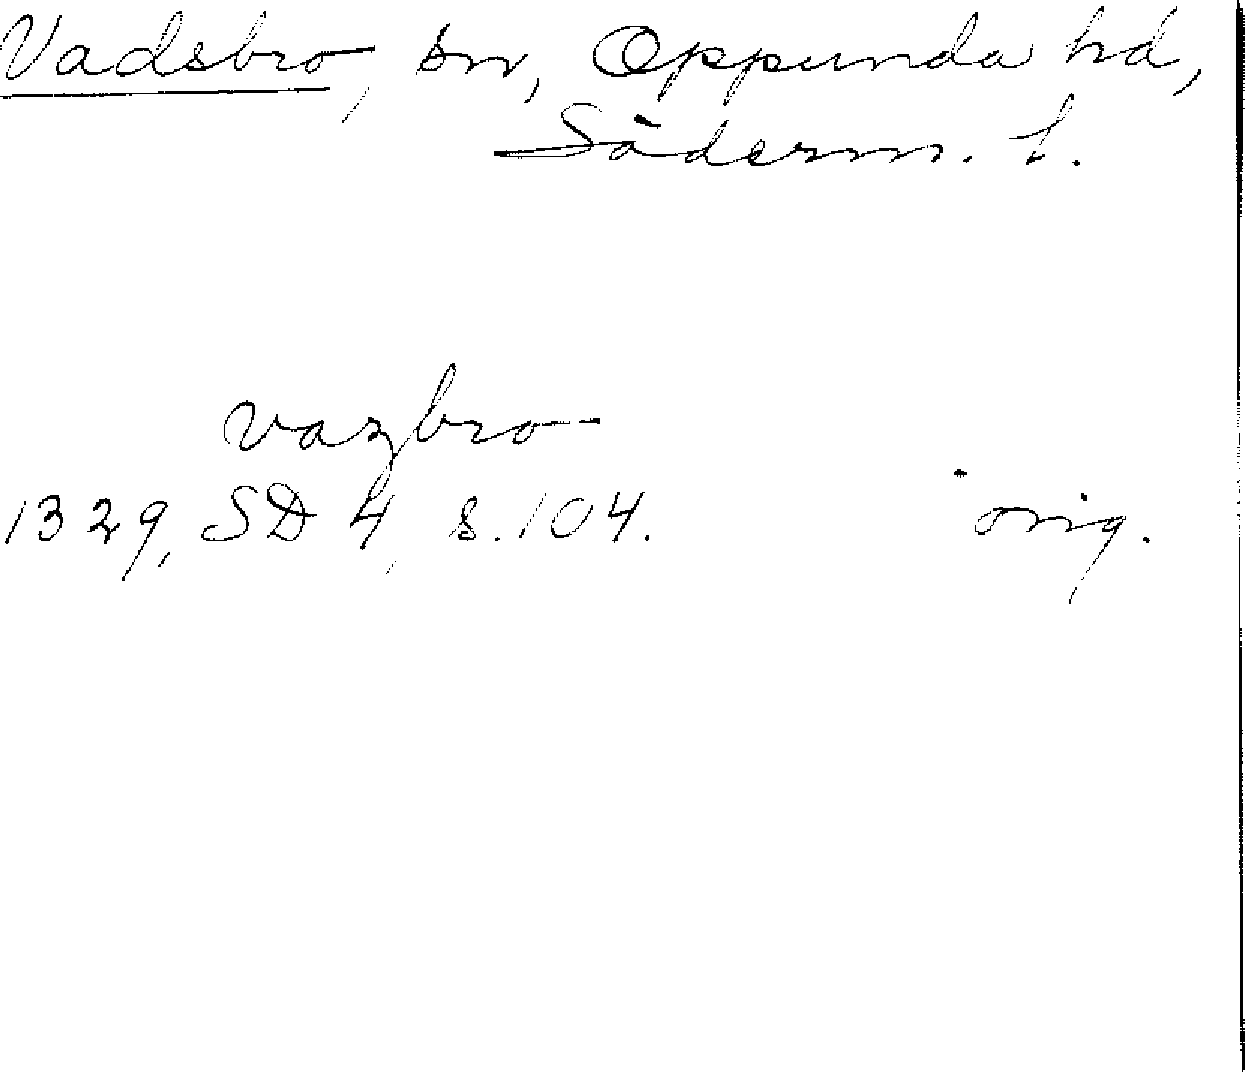 Vadsbro, sn, Oppunda hd,
Söderm. l.
vazbro
1329, SD 4, s. 104. orig.